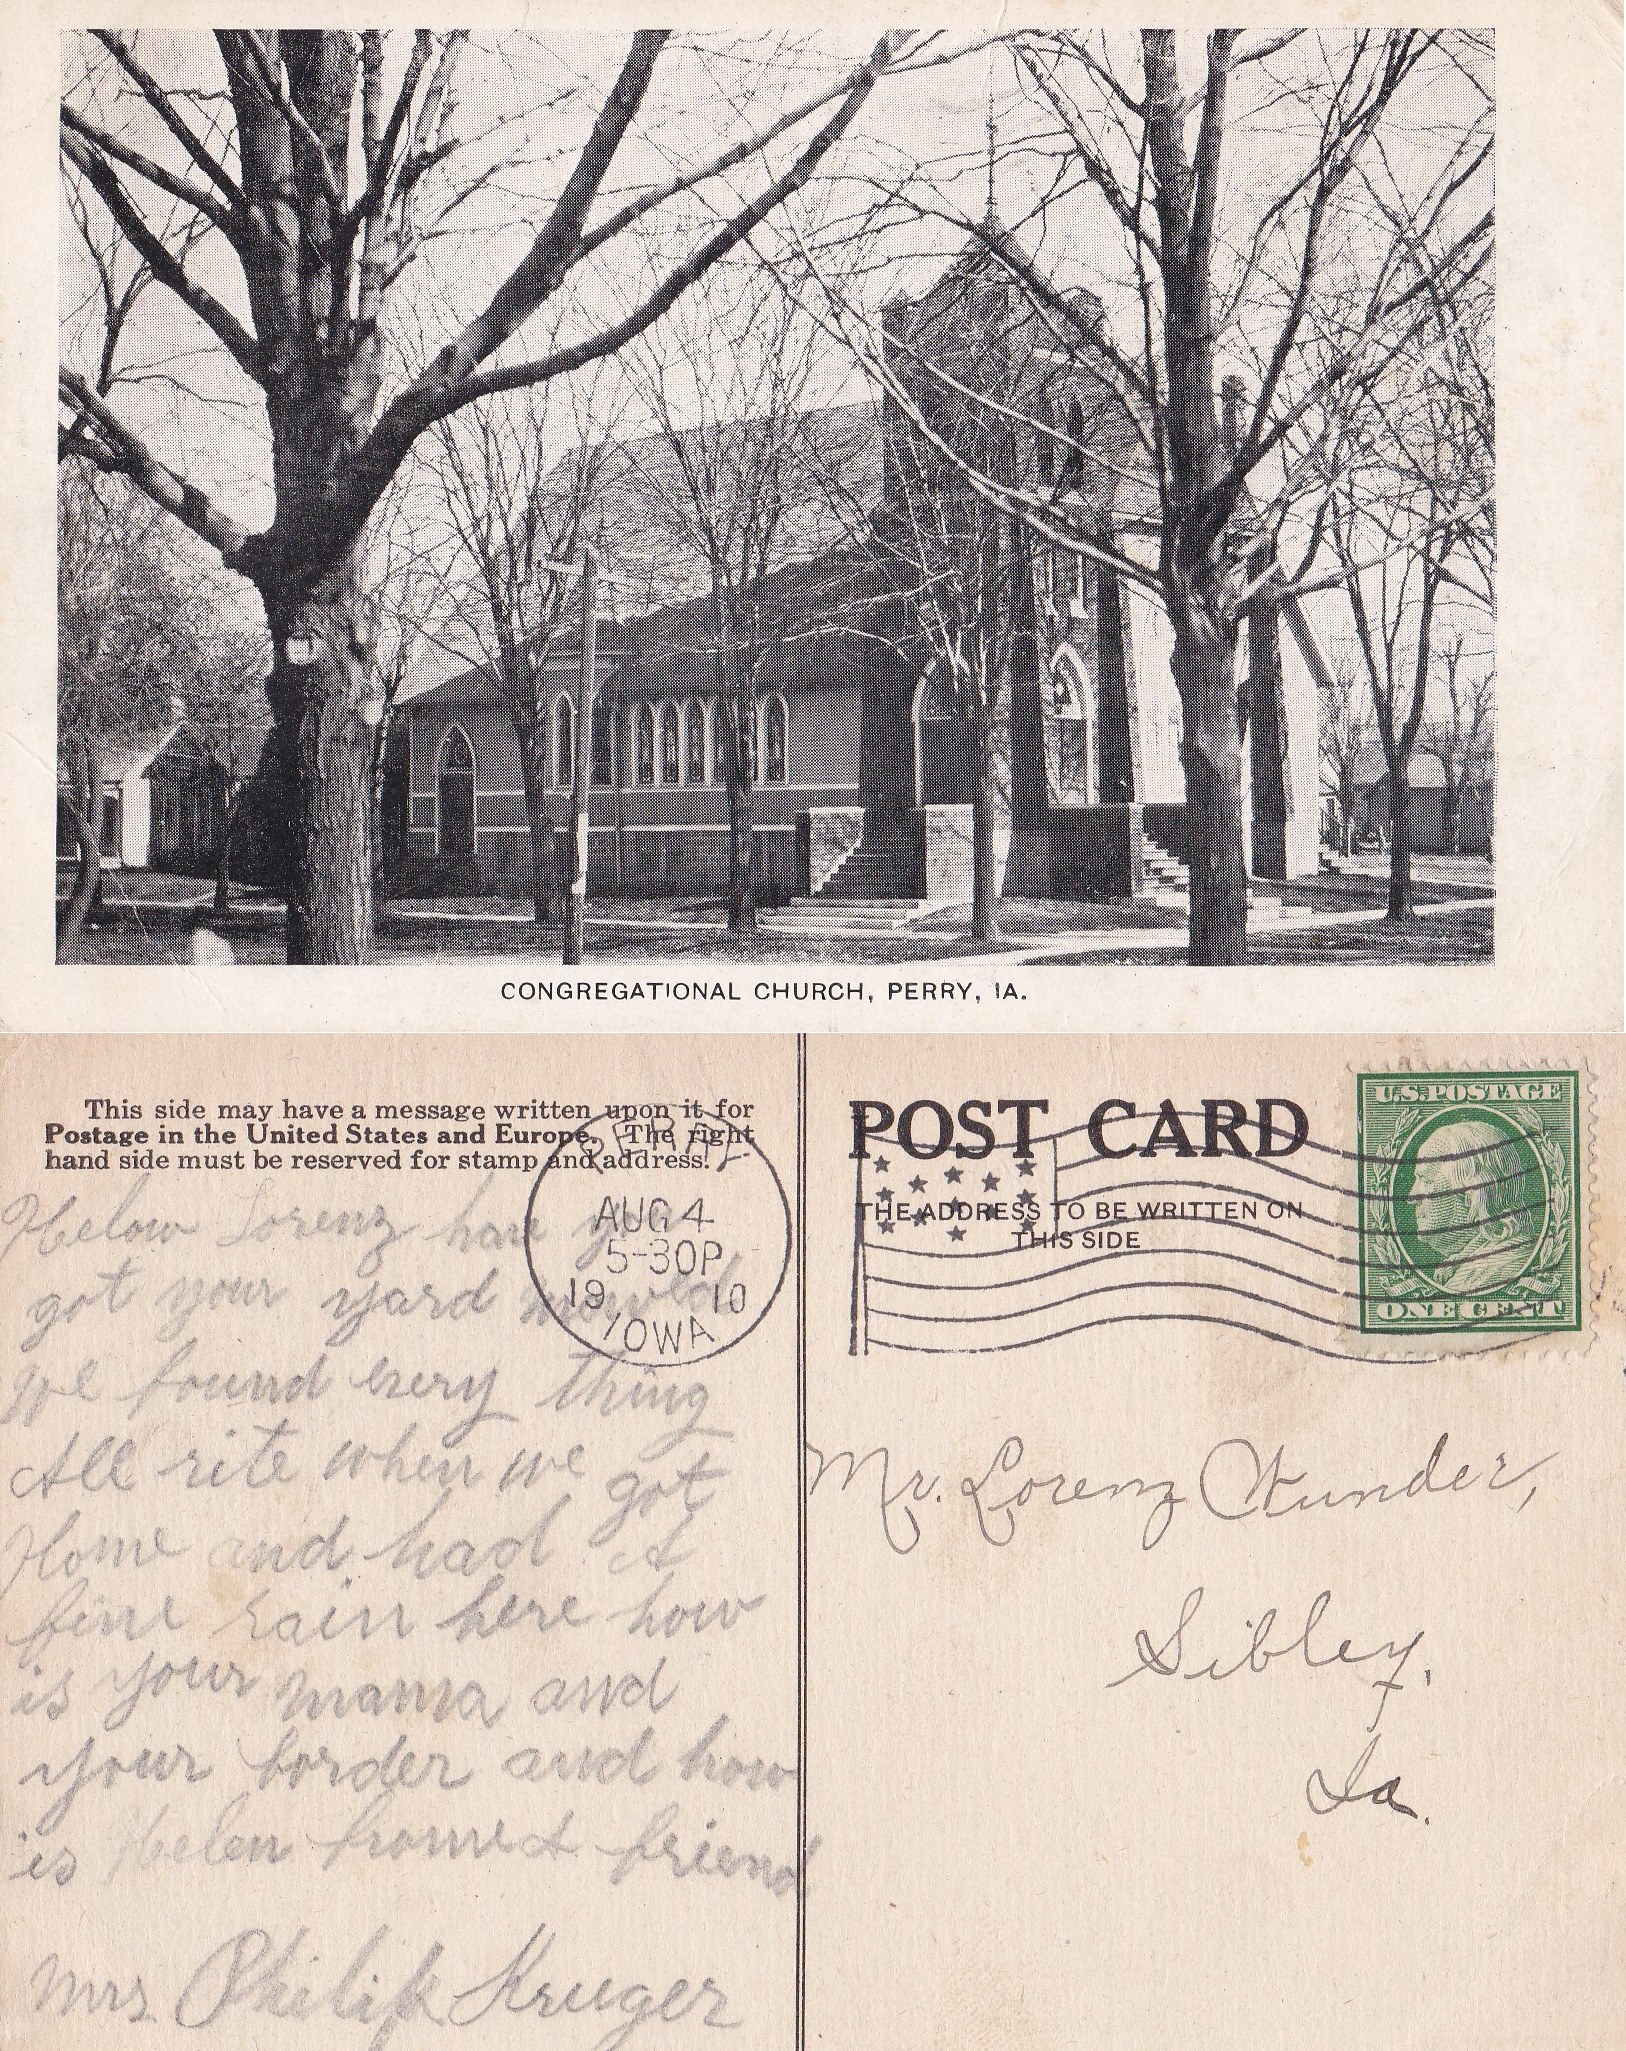 CONGREGATIONAL CHURCH, PERRY, IA.
This side may have a message written upon it for
Postage in the United States and Europe. The right
hand side must be reserved for stamp and address.
Helow Lorenz have
got your yard
we found every thing
All rite when we got
Home and had A
fine rain here how
is your mama and
your border and how
is Helen from A friend
Mrs Philip Kruger
AUG 4
5-30P
1910
IOWA
POST CARD
THE ADDRESS TO BE WRITTEN ON
THIS SIDE
U.S. POSTAGE
ONE CENT
Mr. Lorenz Wunder,
Sibley,
Ia.